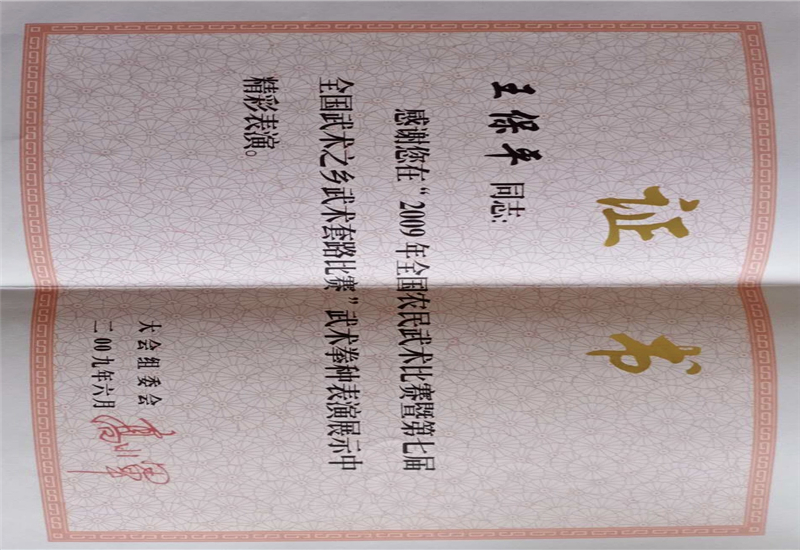 证书
王保平 同志：
感谢您在“2009年全国农民武术比赛暨第七届
全国武术之乡武术套路比赛”武术拳种表演展示中
精彩表演。
大会组委会
二00九年六月